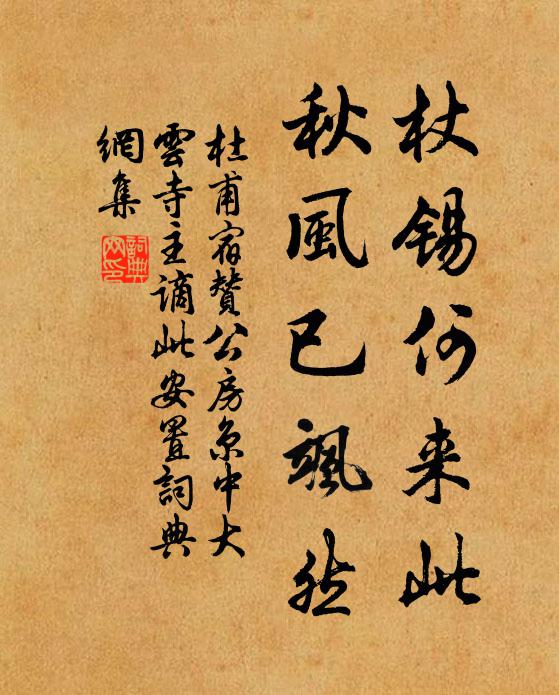 杖錫何来此
秋風已颯然
杜甫宿贊公房京中大
雲寺主謫此安置詞典
網集
詞典
网印